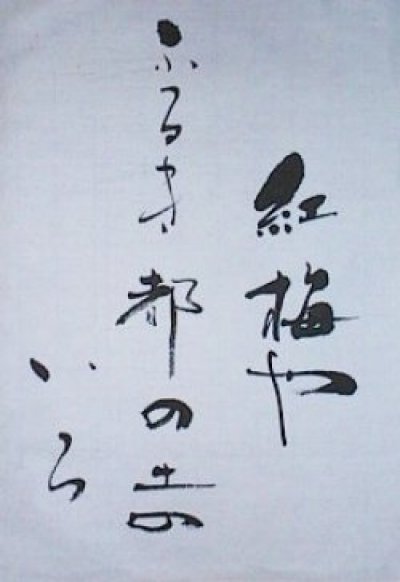 紅梅や
ふるき都の土の
いろ